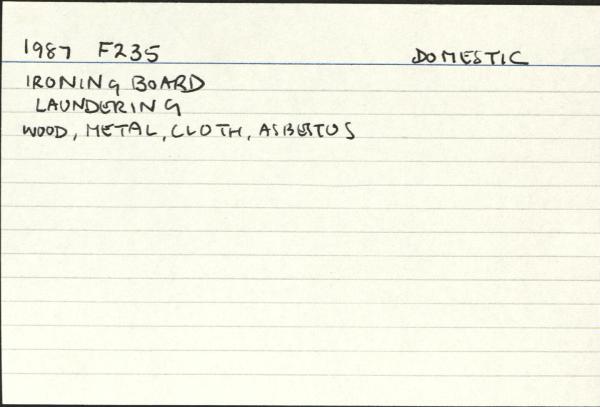 1987 F235 DOMESTIC
IRONING BOARD
LAUNDERING
WOOD, METAL, CLOTH, ASBESTOS